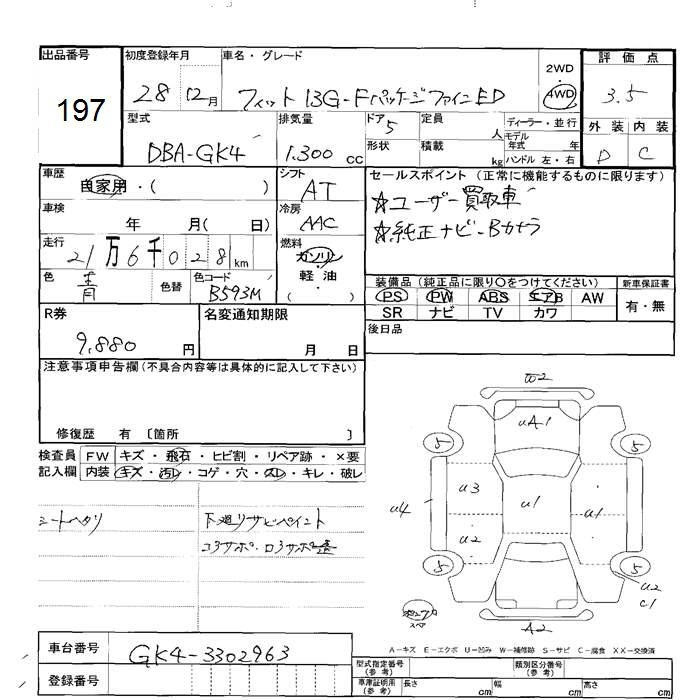 出品番号
197
初度登録年月
28 12月
車名・グレード
フィット 13G-FパッケージファインED
2WD
・
4WD
評価点
3.5
型式
DBA-GK4
排気量
1.300 cc
ドア 5
形状
定員 人
積載 kg
ディーラー・並行
モデル年式 年
ハンドル 左・右
外装 内装
D C
車歴
自家用・( )
シフト
AT
セールスポイント (正常に機能するものに限ります)
☆ユーザー買取車
☆純正ナビ-Bカメラ
車検
年 月( 日)
冷房
AAC
走行
21万6千028km
燃料
ガソリン
・
軽油
( )
色
青
色替
色コード
B593M
装備品 (純正品に限り○をつけてください)
新車保証書
PS PW ABS エアB AW
有・無
SR ナビ TV カワ
R券
9,880 円
名変通知期限
月 日
後日品
注意事項申告欄(不具合内容等は具体的に記入して下さい)
修復歴 有 〔箇所 〕
検査員 FW キズ・飛石・ヒビ割・リペア跡・×要
記入欄 内装 キズ・汚れ・コゲ・穴・スレ・キレ・破レ
シートヘタリ
下廻りサビペイント
コアサポ・ロアサポ歪
W2
uA1
5 5
u3 u1 u1
u4
u2
5 5
u2
C1
スペア
A2
A-キズ E-エクボ U-凹み W-補修跡 S-サビ C-腐食 XX-交換済
車台番号
GK4-3302963
登録番号
型式指定番号
(参考)
類別区分番号
(参考)
車庫証明用
(参考)
長さ cm 幅 cm 高さ cm